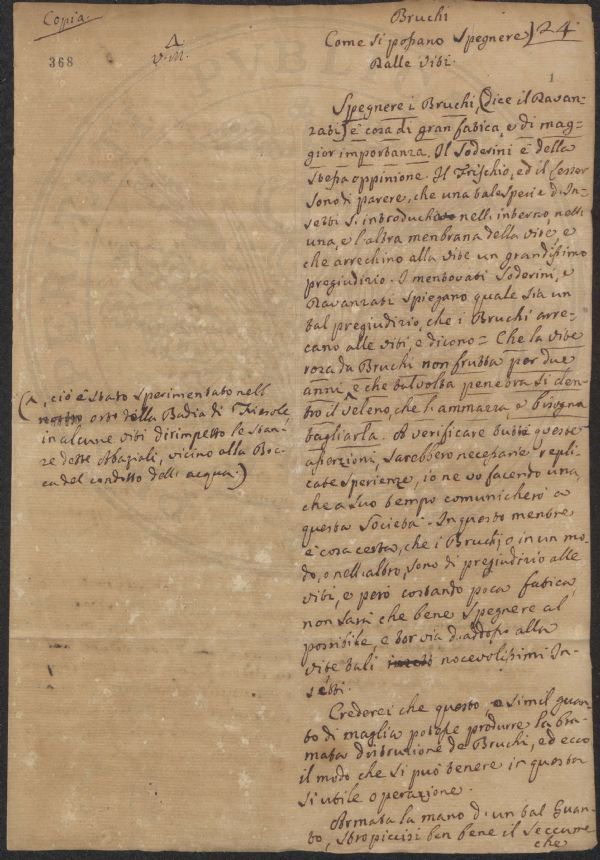 Copia.
368
Λ
V. M.
Bruchi
Come si possano Spegnere 24
Dalle Viti.
1
Spegnere i Bruchi, (dice il Davan-
zati) è cosa di gran fatica, e di mag-
gior importanza. Il Soderini è della
stessa oppinione. Il Trischio, ed il
sono di parere, che una tale specie d'In-
setti s'introduchi nell'interno, nell'
una, e l'altra menbrana della vite, e
che arrechino alla vite un grandissimo
pregiudizio. I mentovati Soderini, e
Davanzati spiegano quale sia un
tal pregiudizio, che i Bruchi arre-
cano alle viti, e dicono = Che la vite
roza da Bruchi non frutta per due
anni, e che talvolta penetra si den-
tro il veleno, che l'ammazza, e bisogna
tagliarla. A verificare tutte queste
asserzioni, sarebbero necessarie repli-
cate sperienze, io ne vo facendo una,
che a suo tempo comunicherò a
questa Società. In questo mentre
è cosa certa, che i Bruchi, o in un mo-
do, o nell'altro, sono di pregiudizio alle
viti, e però costando poca fatica,
non sarà che bene spegnere al
possibile, e tor via d'addosso alla
vite tali nocevolissimi In-
setti.
Crederei che questo, o simil guan-
to di maglia potesse produrre la bra-
mata distruzione de Bruchi, ed ecco
il modo che si può tenere in questa
si utile operazione.
Armata la mano d'un tal Guan-
to, stropiccisi ben bene il seccume
che
(Λ, ciò è stato sperimentato nell'
nostro orto della Badia di Fiesole
in alcune viti dirimpetto le stan-
ze dette Abaziali, vicino alla Boc-
ca del condotto dell'acqua.)